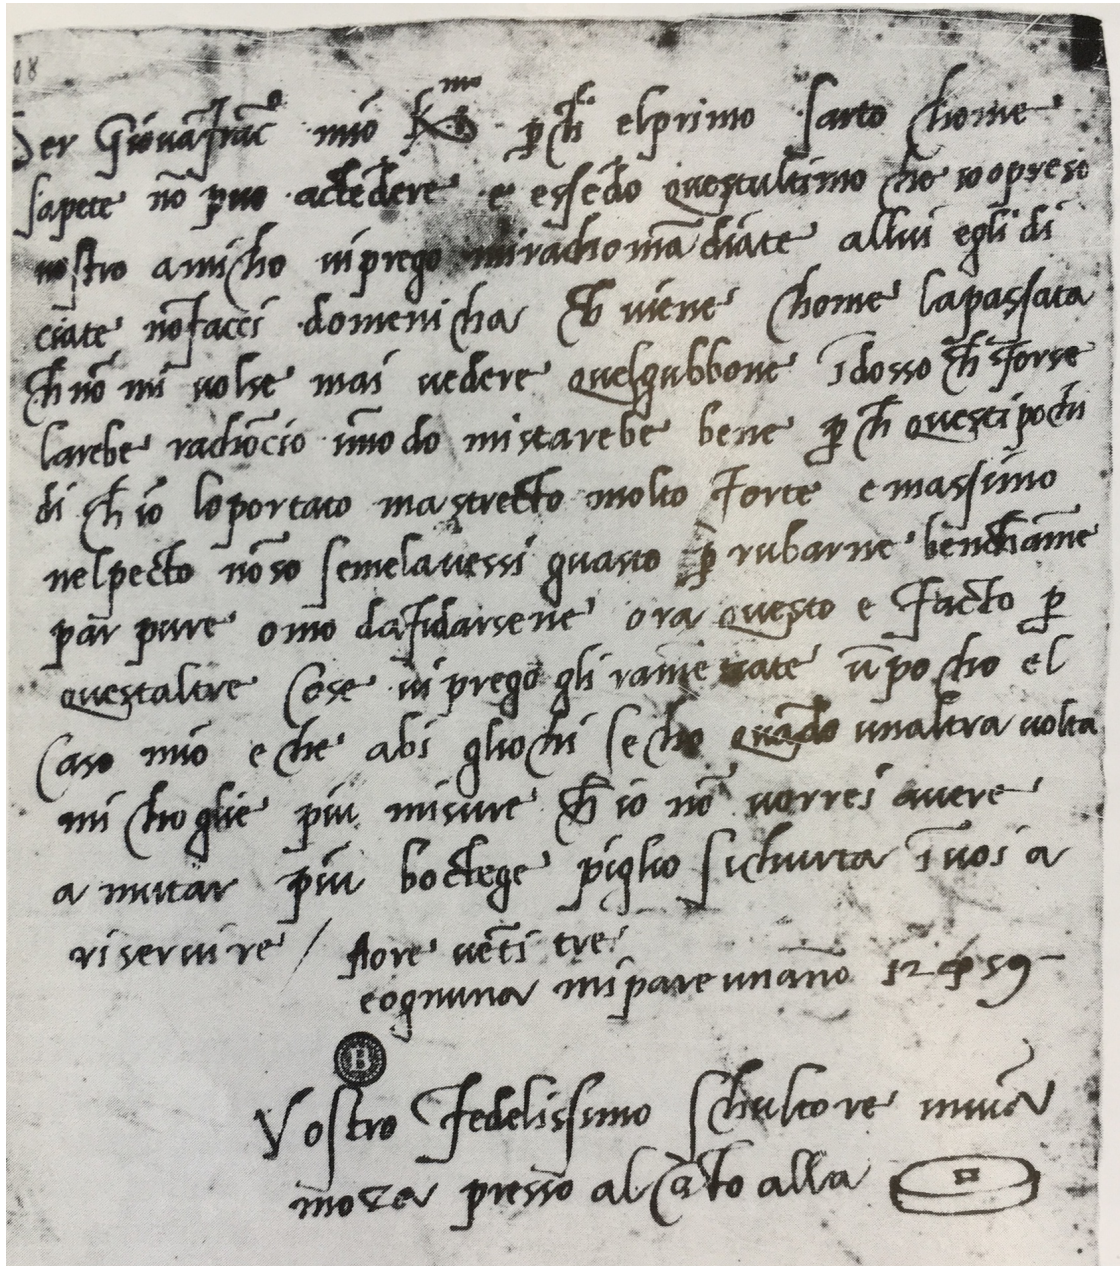 08
Ser Giovāfrāc° mio k̄mo p̄ ch̄ el primo sarto chome
sapete nō puo actēdere e essēdo quest ultimo che io o preso
vostro amicho vi prego mi rachomādiate allui e gli di
ciate nō facci domenicha ch̄ viene chome la passata
ch̄ nō mi volse mai vedere quel gubbone ī dosso ch̄ forse
larebe rachōcio ī modo mi starebe bene p̄ ch̄ questi pochi
di ch̄ io lo portato ma strecto molto forte e massimo
nel pecto nō so se me l avessi guasto p̄ rubarne bench̄ a me
par pure omo da fidarsene ora questo e facto p̄
quest altre cose vi prego gli ramētiate ū pocho el
caso mio e che abi gli ochi secho quādo un altra volta
mi choglie piu misure ch̄ io nō vorrei avere
a mutar piu boctege piglio sichurta ī voi a
ri servire / a ore vēti tre
e ognuna mi pare un anno
Vostro fedelissimo schultore in via
mozza presso al cāto alla
B